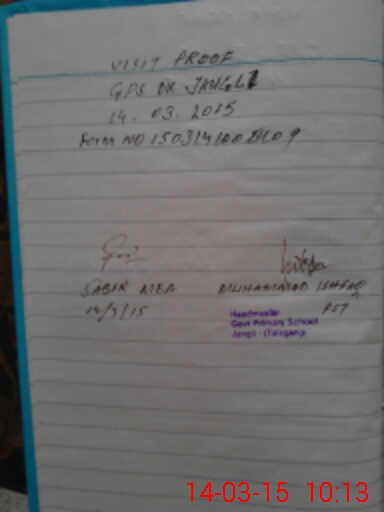 VISIT PROOF
GPS DK JANGLI
14.03.2015
Form NO
SABIR MEA MUHAMMAD ISHFAQ
14/3/15 PST
Headmaster
Govt Primary School
Jangli - (Talagang)
14-03-15 10:13